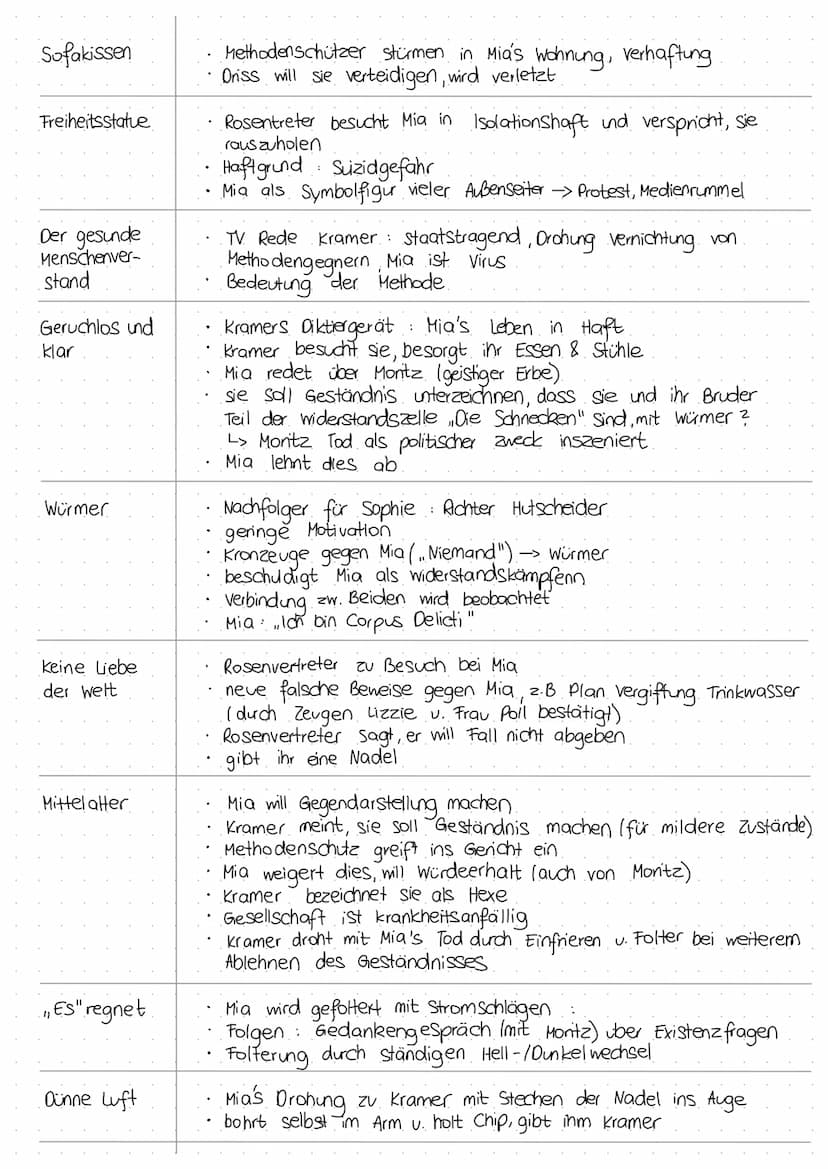 Sofakissen
· Methodenschützer stürmen in Mia's Wohnung, Verhaftung
· Driss will sie verteidigen, wird verletzt
Freiheitsstatue
· Rosentreter besucht Mia in Isolationshaft und verspricht, sie
rauszuholen
· Haftgrund : Suizidgefahr
· Mia als Symbolfigur vieler Außenseiter → Protest, Medienrummel
Der gesunde
Menschenver-
stand
· TV Rede Kramer : staatstragend, Drohung Vernichtung von
Methodengegnern, Mia ist Virus
· Bedeutung der Methode
Geruchlos und
klar
· Kramers Diktiergerät : Mia's Leben in Haft
· Kramer besucht sie, besorgt ihr Essen & Stühle
· Mia redet über Moritz (geistiger Erbe)
· sie soll Geständnis unterzeichnen, dass sie und ihr Bruder
Teil der Widerstandszelle „Die Schnecken" sind, mit Würmer ?
↳ Moritz Tod als politischer Zweck inszeniert
· Mia lehnt dies ab
Würmer
· Nachfolger für Sophie : Richter Hutscheider
· geringe Motivation
· Kronzeuge gegen Mia („Niemand") → Würmer
· beschuldigt Mia als Widerstandskämpferin
· Verbindung zw. Beiden wird beobachtet
· Mia : „Ich bin Corpus Delicti"
Keine Liebe
der Welt
· Rosenvertreter zu Besuch bei Mia
· neue falsche Beweise gegen Mia, z.B Plan Vergiftung Trinkwasser
(durch Zeugen Lizzie u. Frau Poll bestätigt)
· Rosenvertreter sagt, er will Fall nicht abgeben
· gibt ihr eine Nadel
Mittelalter
· Mia will Gegendarstellung machen
· Kramer meint, sie soll Geständnis machen (für mildere Zustände)
· Methodenschutz greift ins Gericht ein
· Mia weigert dies, will Würdeerhalt (auch von Moritz)
· Kramer bezeichnet sie als Hexe
· Gesellschaft ist krankheitsanfällig
· Kramer droht mit Mia's Tod durch Einfrieren u. Folter bei weiterem
Ablehnen des Geständnisses
„Es" regnet
· Mia wird gefoltert mit Stromschlägen :
· Folgen : Gedankengespräch (mit Moritz) über Existenzfragen
· Folterung durch ständigen Hell-/Dunkelwechsel
Dünne Luft
· Mia's Drohung zu Kramer mit Stechen der Nadel ins Auge
· bohrt selbst im Arm u. holt Chip, gibt ihm Kramer